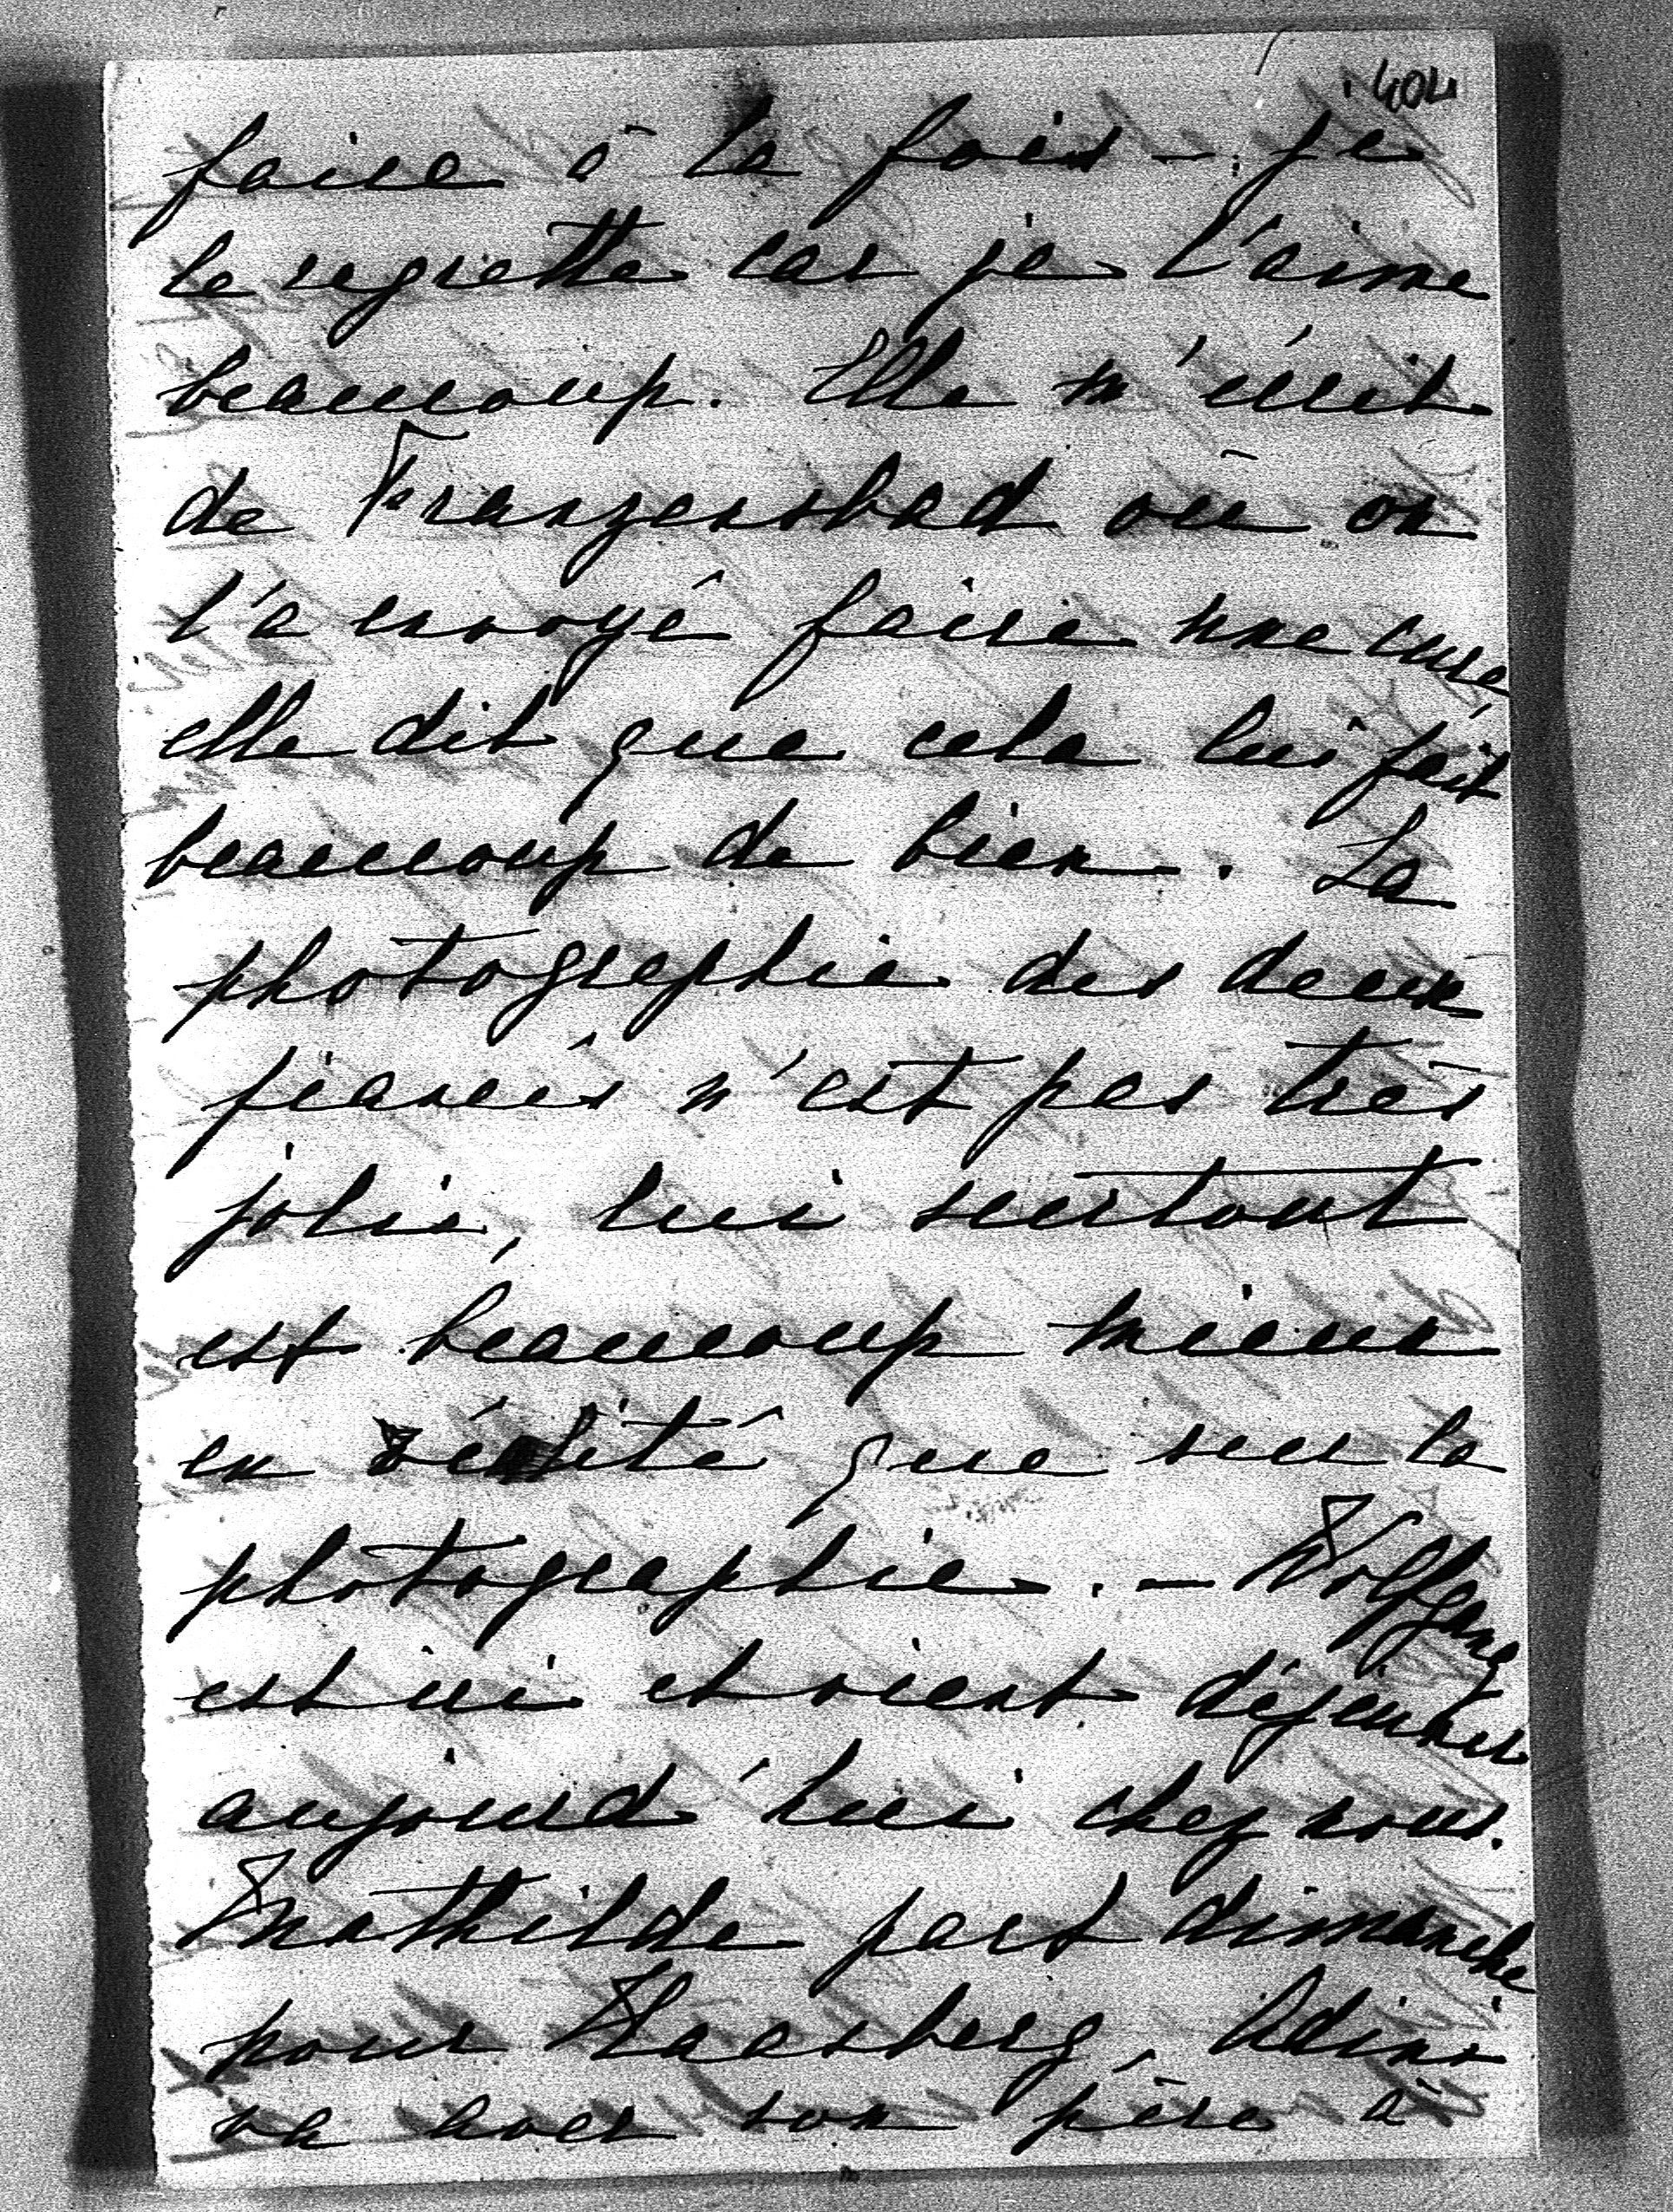 404
faire à la fois – je
le regrette car je l'aime
beaucoup. Elle m'écrit
de Franzensbad où on
l'a envoyé faire une cure,
elle dit que cela lui fait
beaucoup de bien. La
photographie des deux
fiancés n'est pas très
jolie, lui surtout
est beaucoup mieux
en réalité que sur la
photographie. – Wolfgang
est ici et vient déjeuner
aujourd'hui chez nous.
Mathilde part dimanche
pour Haasberg,
va avec son père à